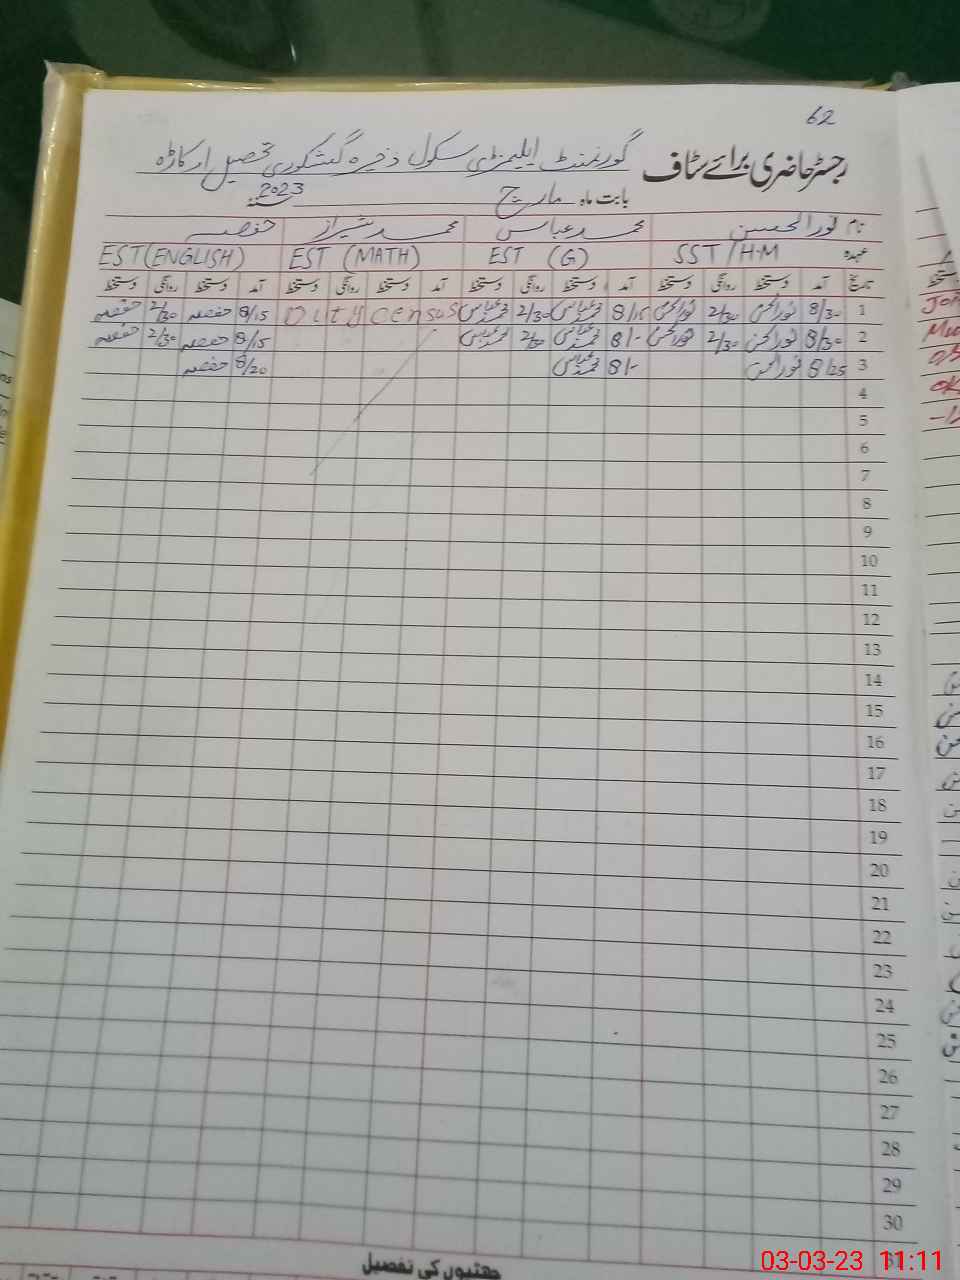 62
رجسٹر حاضری برائے سٹاف گورنمنٹ ایلیمنٹری سکول ذخیرہ گشکوری تحصیل اوکاڑہ
بابت ماہ مارچ 2023
نام نور الحسن محمد عباس محمد شیراز حفصہ
عہدہ SST/H.M EST (G) EST (MATH) EST (ENGLISH)
تاریخ آمد دستخط روانگی دستخط آمد دستخط روانگی دستخط آمد دستخط روانگی دستخط آمد دستخط روانگی دستخط
1 8/30 نور الحسن 2/30 نور الحسن 8/15 محمد عباس 2/30 محمد عباس Duty census 8/15 حفصہ 2/30 حفصہ
2 8/30 نور الحسن 2/30 نور الحسن 8/- محمد عباس 2/30 محمد عباس 8/15 حفصہ 2/30 حفصہ
3 8/25 نور الحسن 8/- محمد عباس 8/20 حفصہ
4
5
6
7
8
9
10
11
12
13
14
15
16
17
18
19
20
21
22
23
24
25
26
27
28
29
30
31
چھٹیوں کی تفصیل
03-03-23 11:11